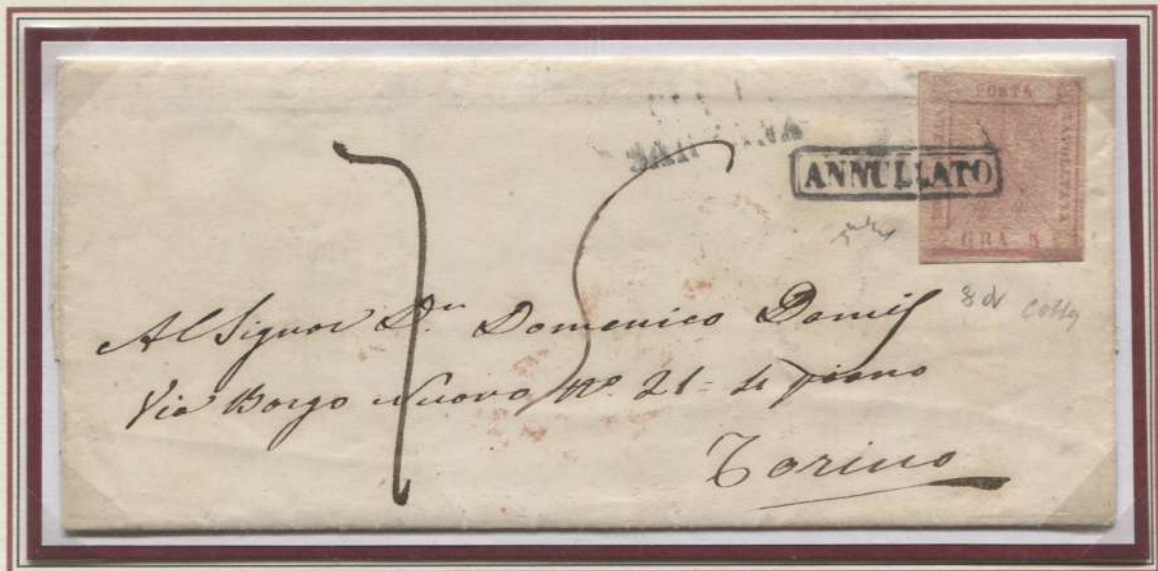 POSTA
NAPOLETANA
GRA 5
ANNULLATO
75
Al Signor Dn. Domenico Damis
Via Borgo Nuovo No. 21 = 4 piano
Torino